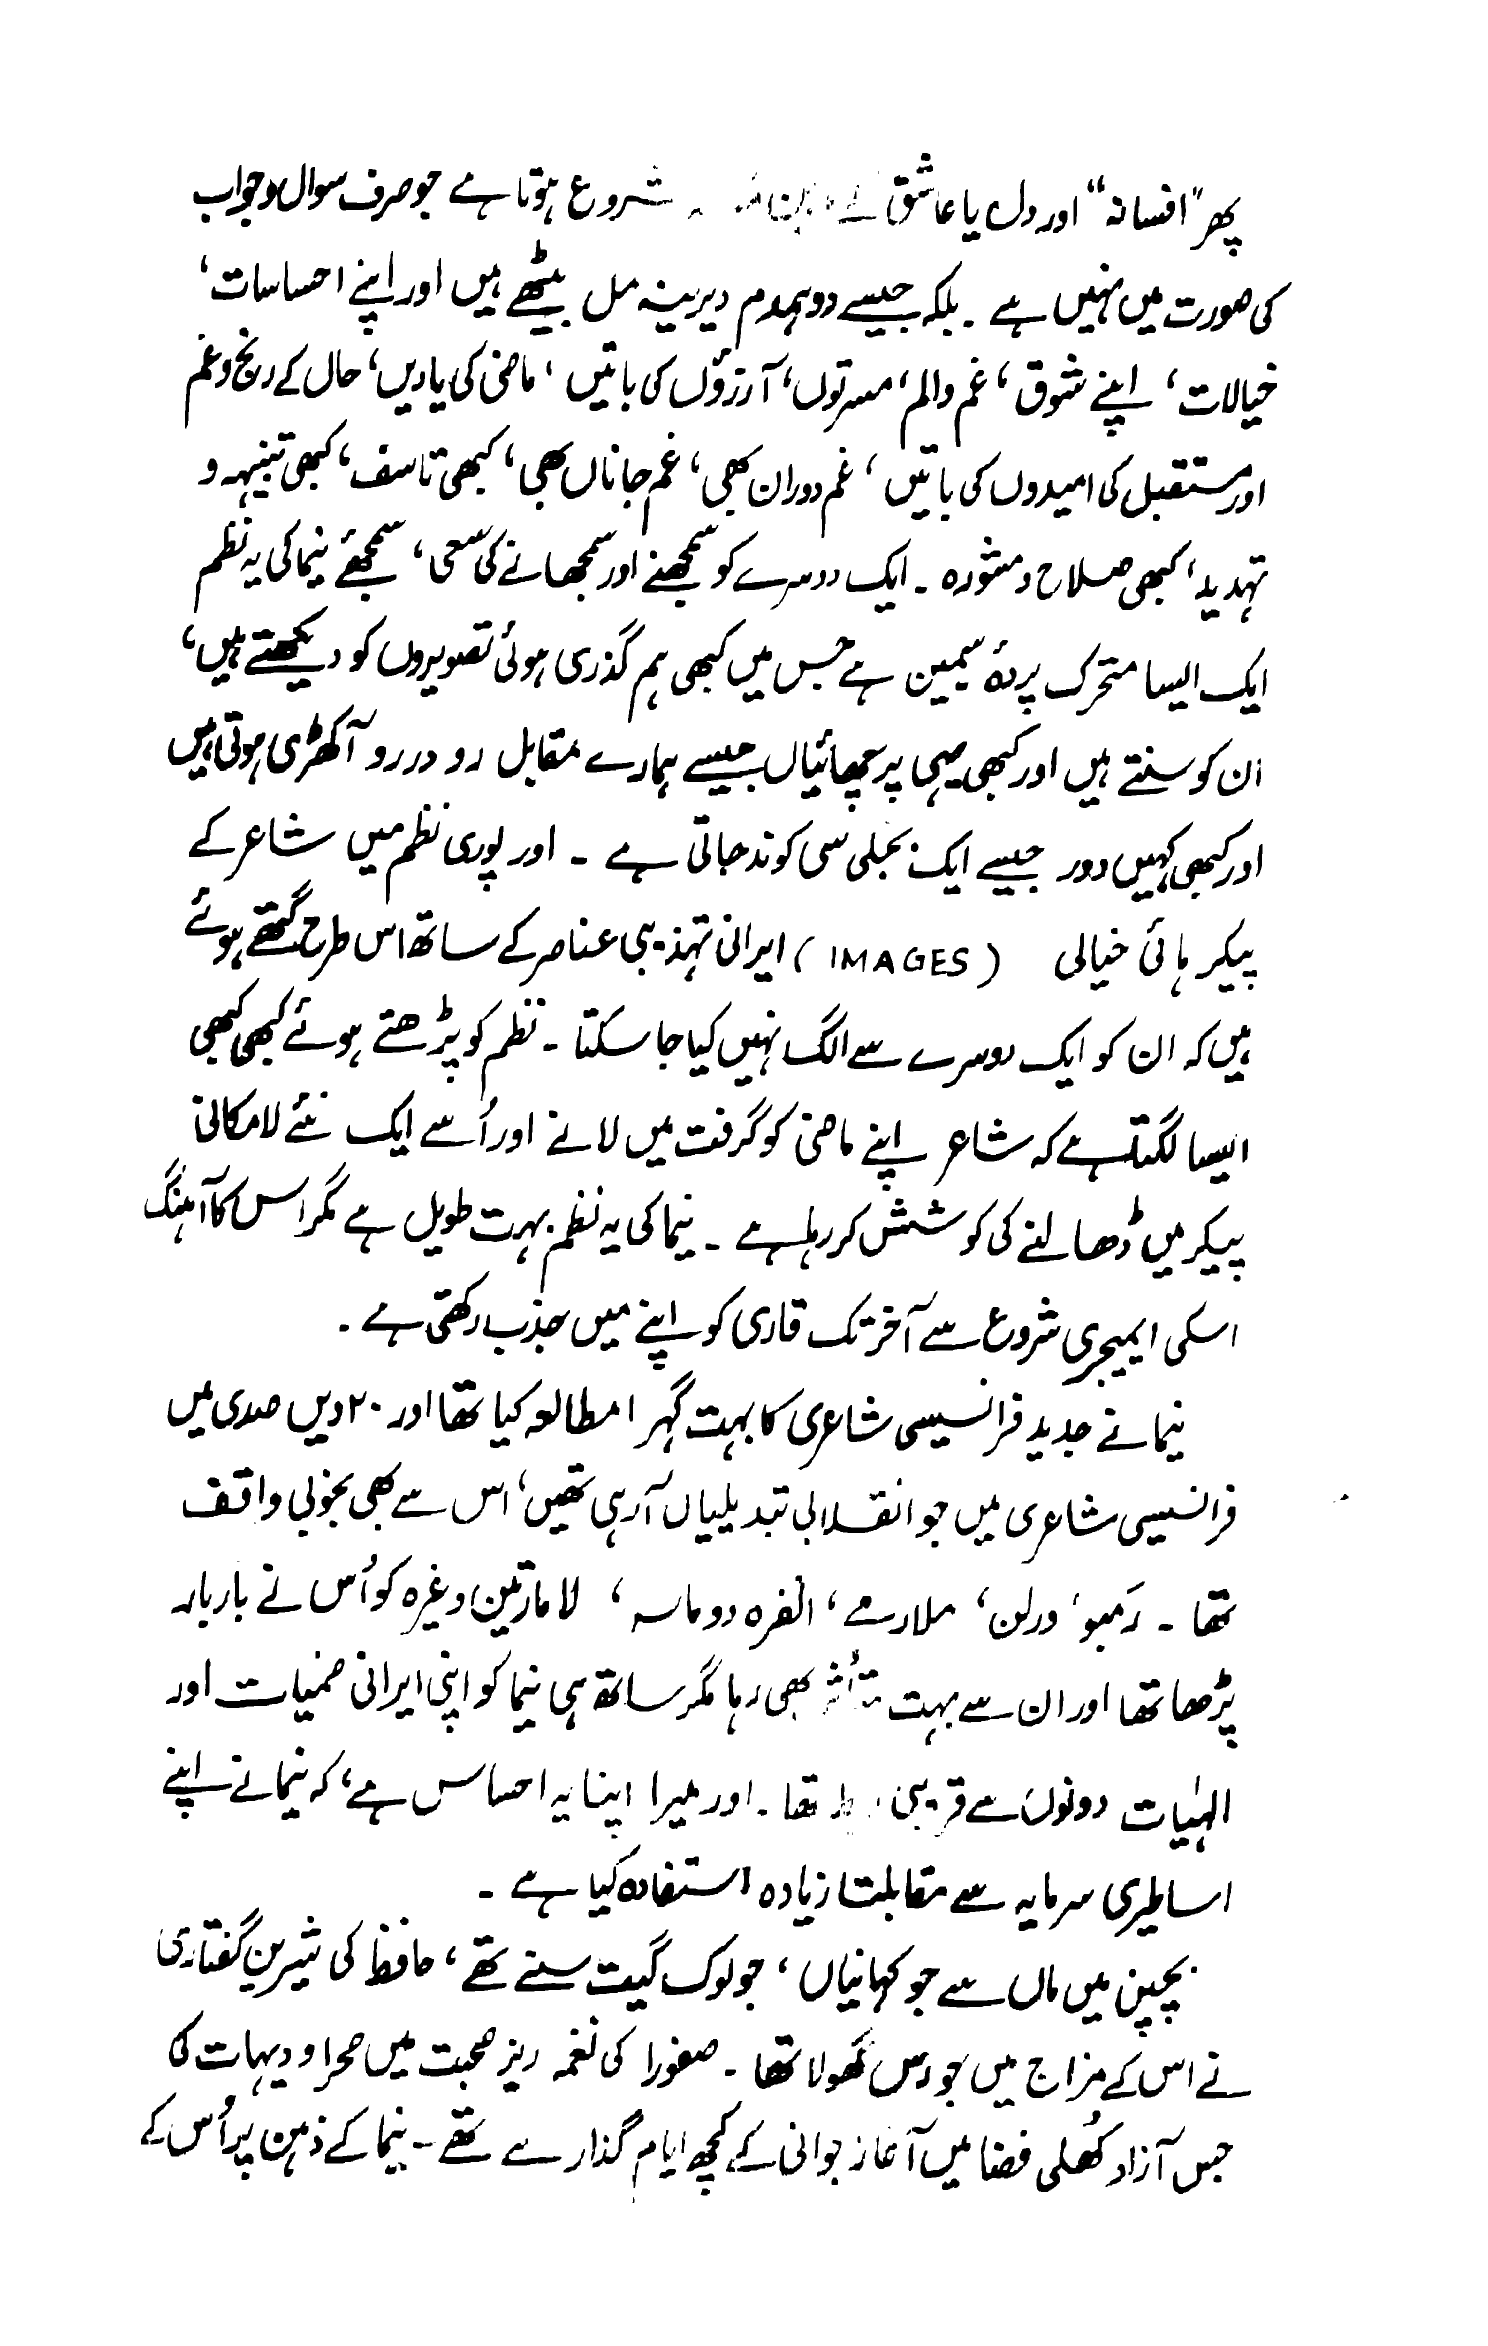 پھر "افسانہ" اور دل یا عاشق کے شروع ہوتا ہے جو صرف سوال و جواب
کی صورت میں نہیں ہے ۔ بلکہ جیسے دو ہمدم دیرینہ مل بیٹھے ہیں اور اپنے احساسات ،
خیالات ، اپنے شوق ، غم و الم ، مسرتوں ، آرزؤں کی باتیں ، ماضی کی یادیں ، حال کے رنج و غم
اور مستقبل کی امیدوں کی باتیں ، غم دوران بھی ، غم جاناں بھی ، کبھی تاسف ، کبھی تنبیہہ و
تہدید ، کبھی صلاح و مشورہ ۔ ایک دوسرے کو سمجھنے اور سمجھانے کی سعی ، سمجھئے نیما کی یہ نظم
ایک ایسا متحرک پردۂ سیمین ہے جس میں کبھی ہم گذری ہوئی تصویروں کو دیکھتے ہیں ،
ان کو سنتے ہیں اور کبھی یہی پرچھائیاں جیسے ہمارے مقابل رو در رو آ کھڑی ہوتی ہیں
اور کبھی کہیں دور جیسے ایک بجلی سی کوند جاتی ہے ۔ اور پوری نظم میں شاعر کے
پیکر ہائی خیالی (IMAGES) ایرانی تہذیبی عناصر کے ساتھ اس طرح گتھے ہوئے
ہیں کہ ان کو ایک دوسرے سے الگ نہیں کیا جا سکتا ۔ نظم کو پڑھتے ہوئے کبھی کبھی
ایسا لگتا ہے کہ شاعر اپنے ماضی کو گرفت میں لانے اور اُسے ایک نئے لامکانی
پیکر میں ڈھالنے کی کوشش کر رہا ہے ۔ نیما کی یہ نظم بہت طویل ہے مگر اس کا آہنگ
اسکی ایمیجری شروع سے آخر تک قاری کو اپنے میں جذب رکھتی ہے ۔
نیما نے جدید فرانسیسی شاعری کا بہت گہرا مطالعہ کیا تھا اور ۲۰ ویں صدی میں
فرانسیسی شاعری میں جو انقلابی تبدیلیاں آ رہی تھیں ، اس سے بھی بخوبی واقف
تھا ۔ رمبو ، ورلن ، ملارمے ، الفرہ دو ماسہ ، لامارتین وغیرہ کو اُس نے بار بار
پڑھا تھا اور ان سے بہت متأثر بھی رہا مگر ساتھ ہی نیما کو اپنی ایرانی صنمیات اور
الہٰیات دونوں سے قریبی ربط تھا ۔ اور میرا اپنا یہ احساس ہے ، کہ نیما نے اپنے
اساطیری سرمایہ سے مقابلتا زیادہ استفادہ کیا ہے ۔
بچپن میں ماں سے جو کہانیاں ، جو لوک گیت سنے تھے ، حافظ کی شیرین گفتاری
نے اس کے مزاج میں جو رس گھولا تھا ۔ صفورا کی نغمہ ریز صحبت میں صحرا و دیہات کی
جس آزاد کُھلی فضا میں آغاز جوانی کے کچھ ایام گذارے تھے ۔ نیما کے ذہن پر اُس کے